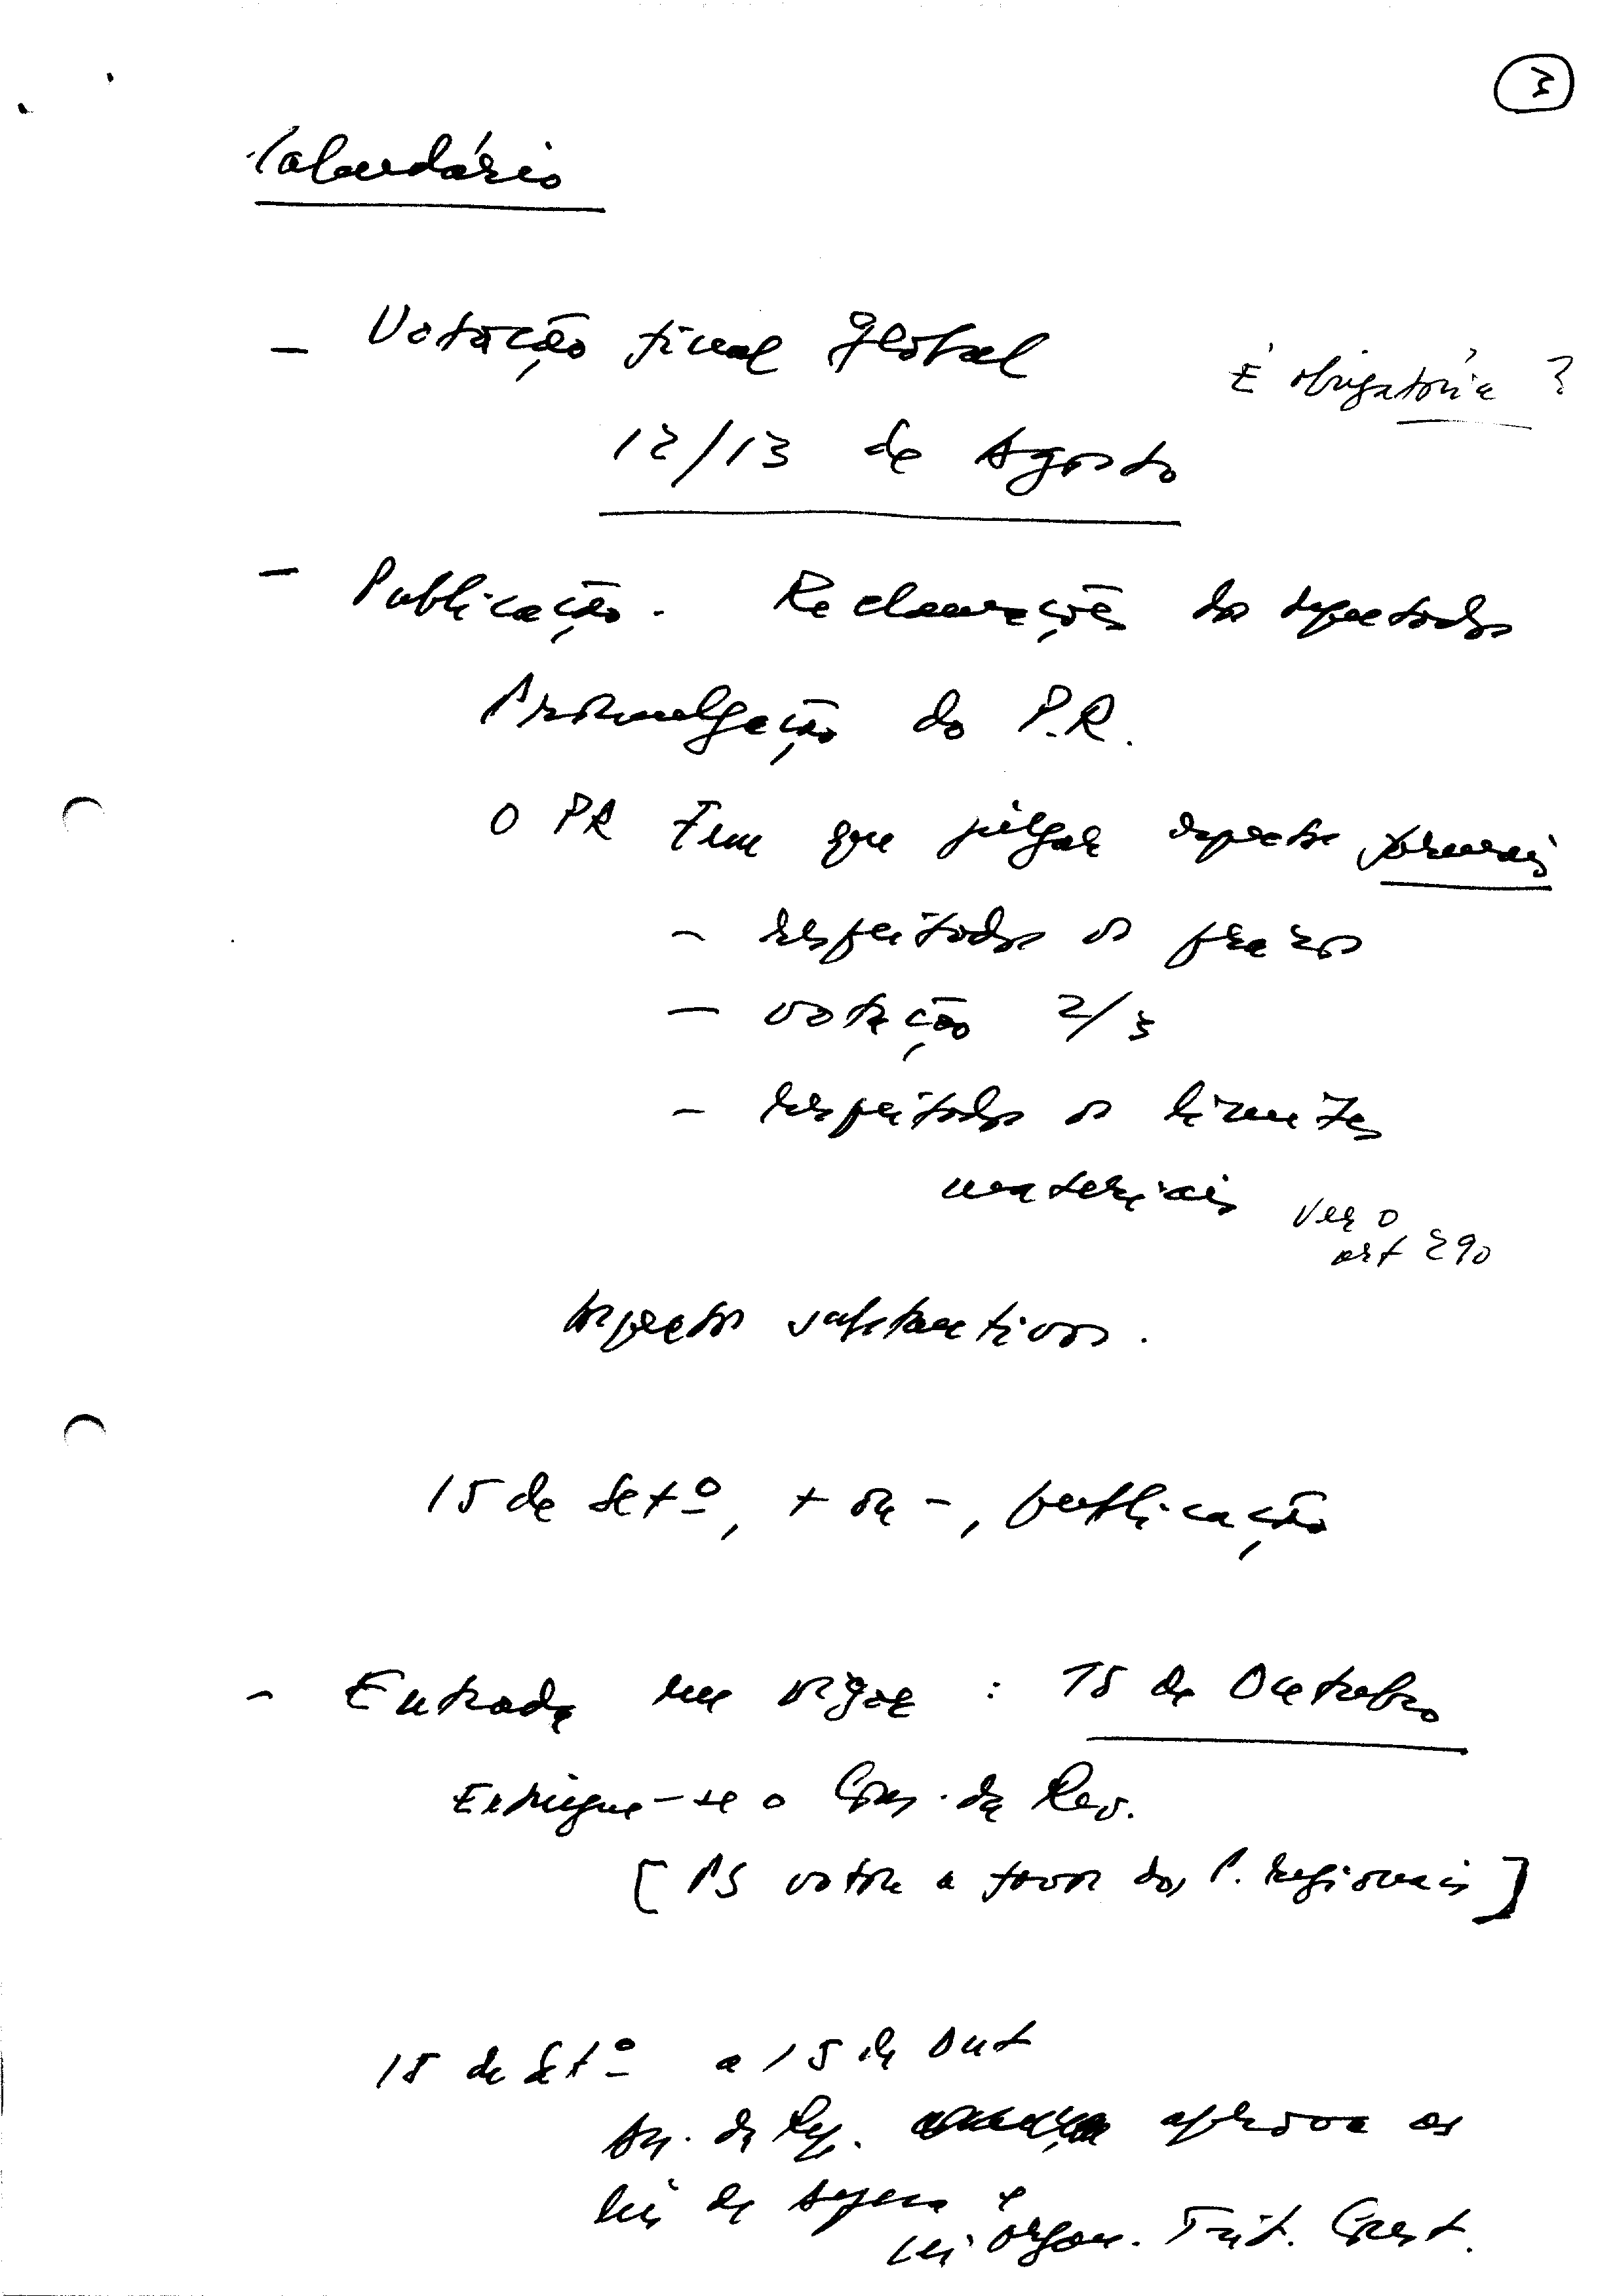 3
Calendário
- Votação final global
É obrigatória ?
12/13 de Agosto
- Publicação. Reclamações dos deputados
Promulgação do P.R.
O PR tem que julgar aspectos formais
- respeitados os prazos
- votação 2/3
- respeitados os limites
materiais ver o
art 290
Aspectos substantivos.
15 de Setº, + ou -, publicação
- Entrada em vigor : 15 de Outubro
Extingue-se o Cons. da Rev.
[PS votou a favor dos P. regionais]
15 de Setº a 15 de Out
Ass. da Rep. aprova as
leis de defesa e
Lei organ. Trib. Const.